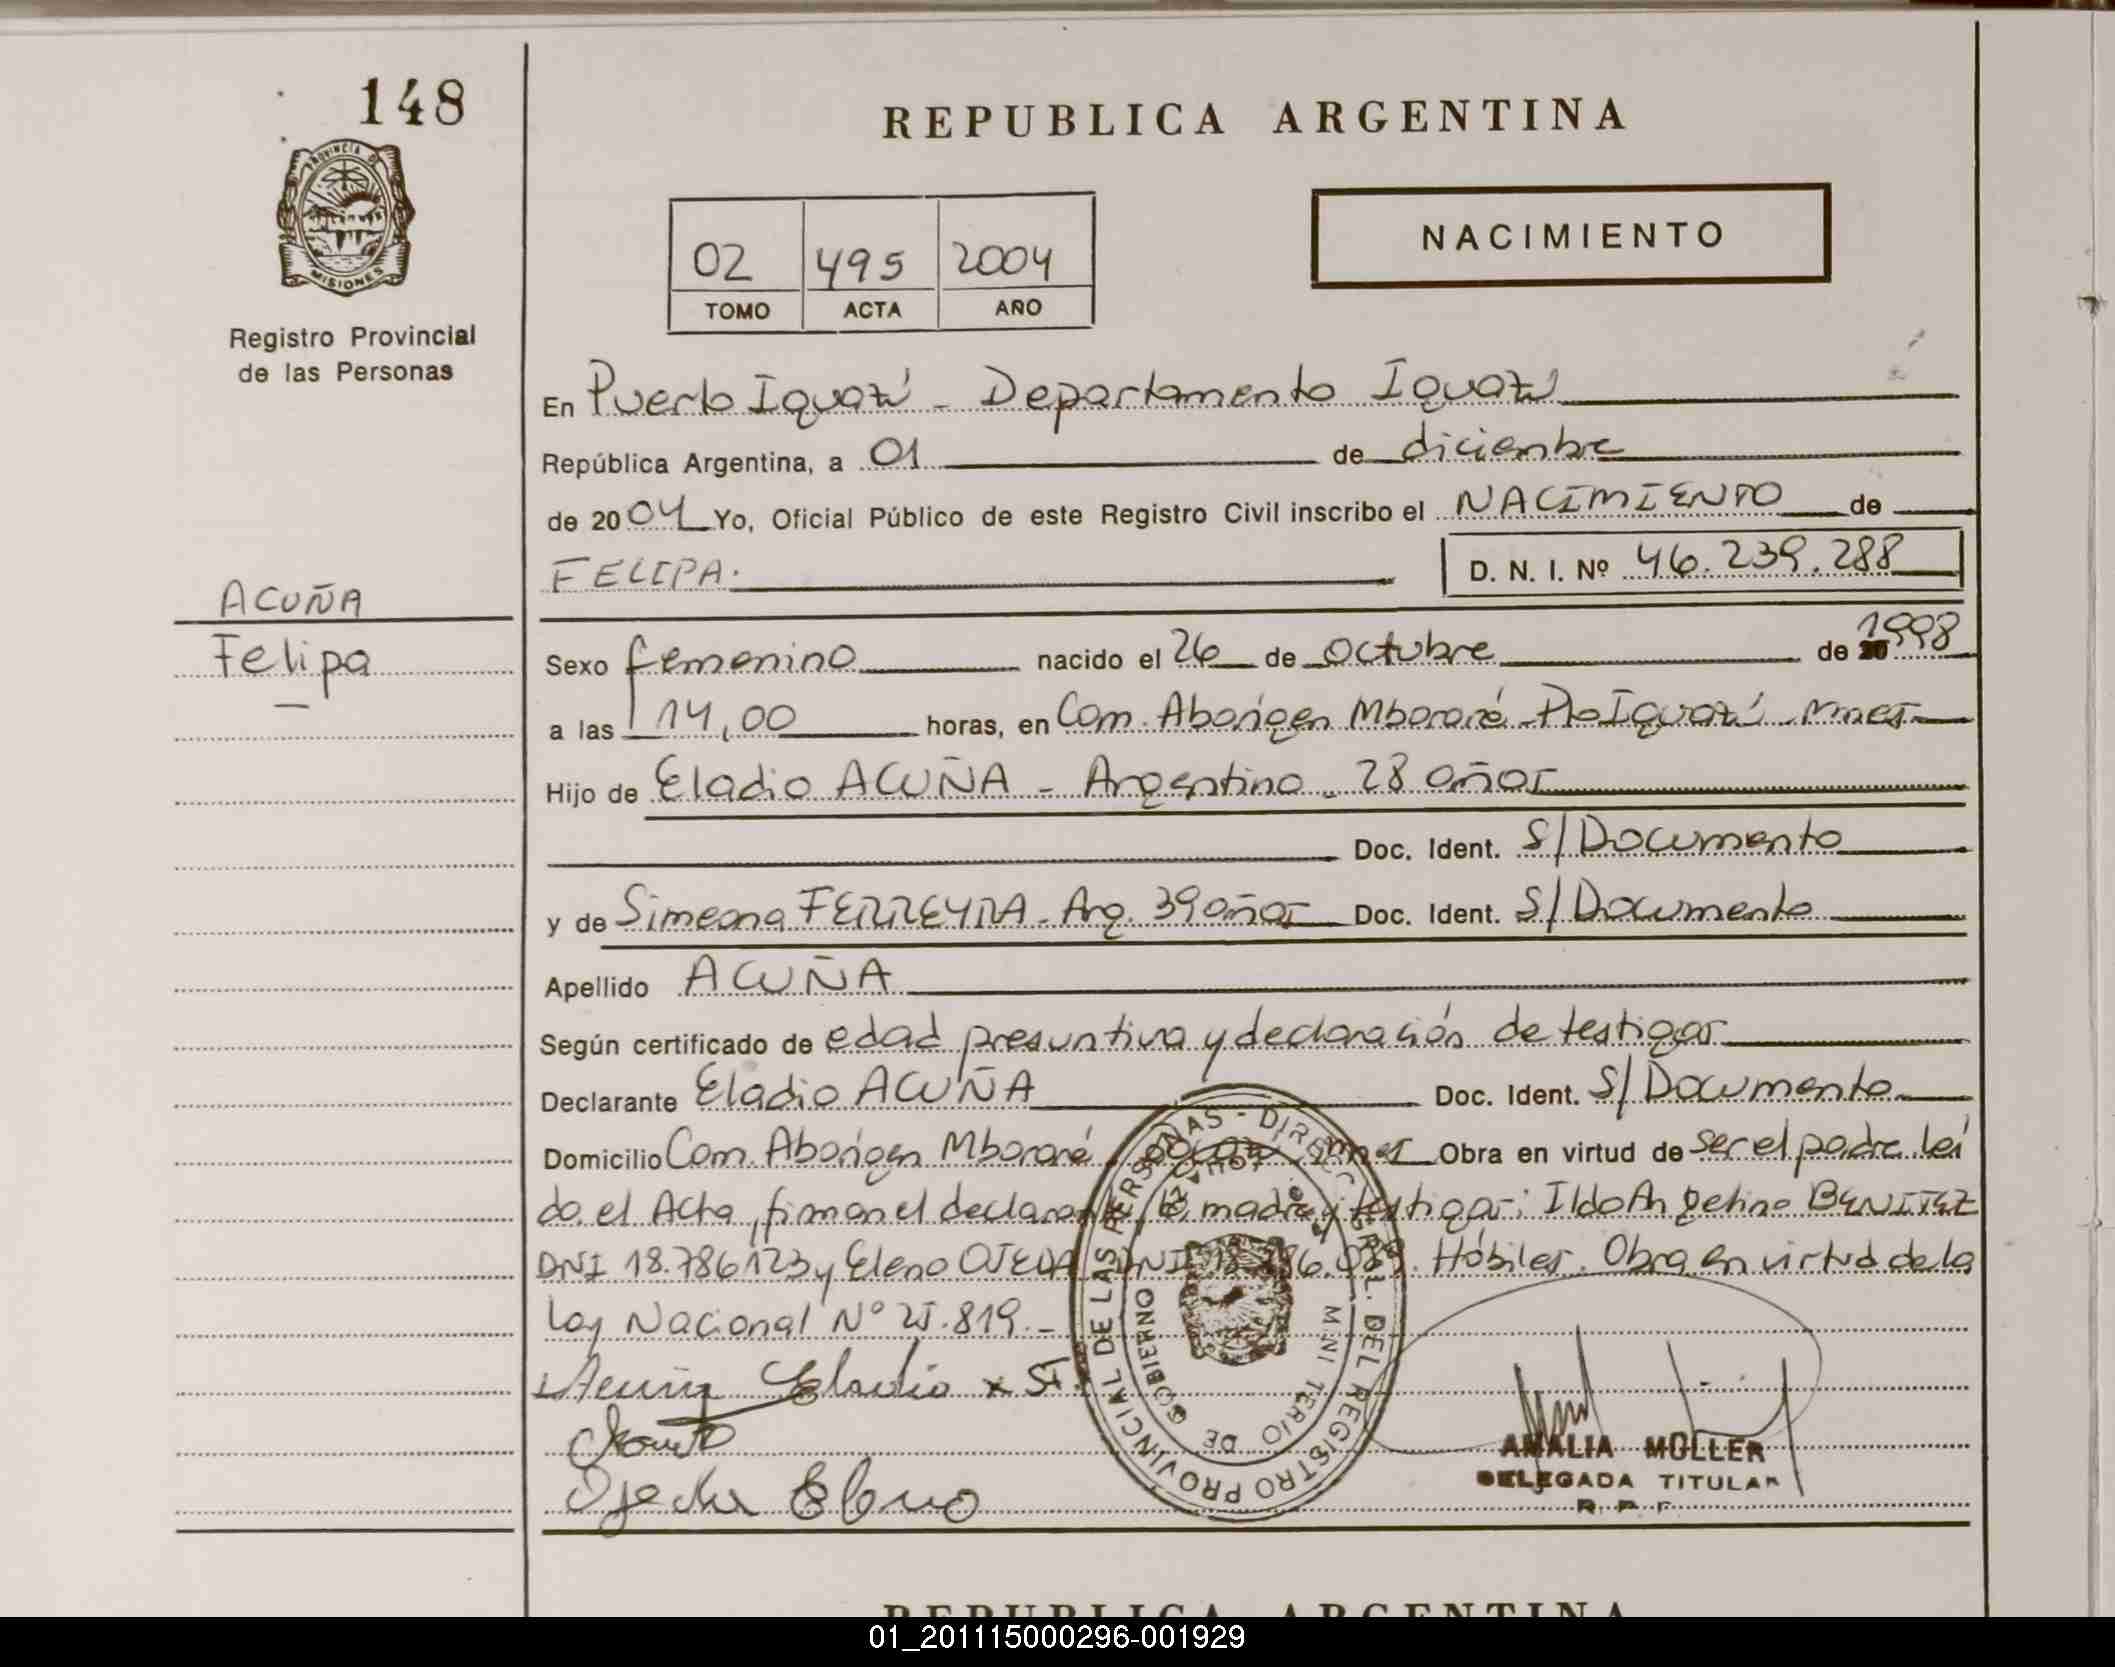 148
REPUBLICA ARGENTINA
PROVINCIA DE
MISIONES
Registro Provincial
de las Personas
NACIMIENTO
02 495 2004
TOMO ACTA AÑO
En Puerto Iguazú - Departamento Iguazú
República Argentina, a 01 de diciembre
de 2004 Yo, Oficial Público de este Registro Civil inscribo el NACIMIENTO de
FELIPA. D. N. I. Nº 46.239.288
ACUÑA
Felipa
Sexo femenino nacido el 26 de octubre de 1998
a las 14,00 horas, en Com. Aborigen Mbororé - Pto Iguazú - Mnes
Hijo de Eladio ACUÑA - Argentino - 28 años
Doc. Ident. S/Documento
y de Simeona FERREYRA - Arg. 39 años Doc. Ident. S/Documento
Apellido ACUÑA
Según certificado de edad presuntiva y declaración de testigos
Declarante Eladio ACUÑA Doc. Ident. S/Documento
Domicilio Com. Aborigen Mbororé Mnes Obra en virtud de ser el padre. Leí
da el Acta, firman el declarante, la madre y testigos: Ildo Angelino BENITEZ
DNI 18.786123 y Eleno OJEDA DNI Hábiles. Obra en virtud de la
Ley Nacional Nº 25.819.-
Acuña Eladio x
Ojeda Eleno
DIRECC. GRAL. DEL REGISTRO PROVINCIAL DE LAS PERSONAS
MINISTERIO DE GOBIERNO
AMALIA MOLLER
DELEGADA TITULAR
REPUBLICA ARGENTINA
01_201115000296-001929